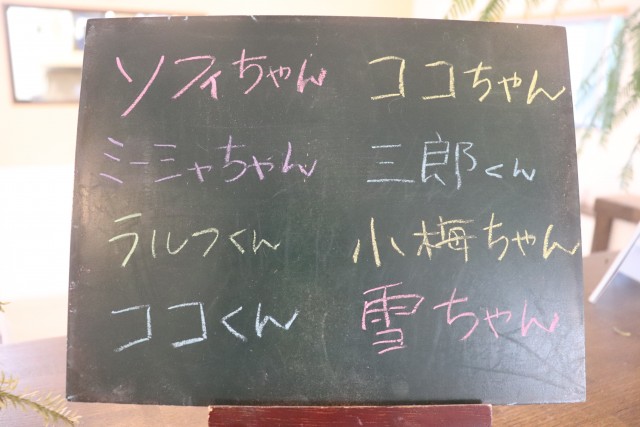 ソフィちゃん
ミーミャちゃん
ラルフくん
ココくん
ココちゃん
三郎くん
小梅ちゃん
雪ちゃん